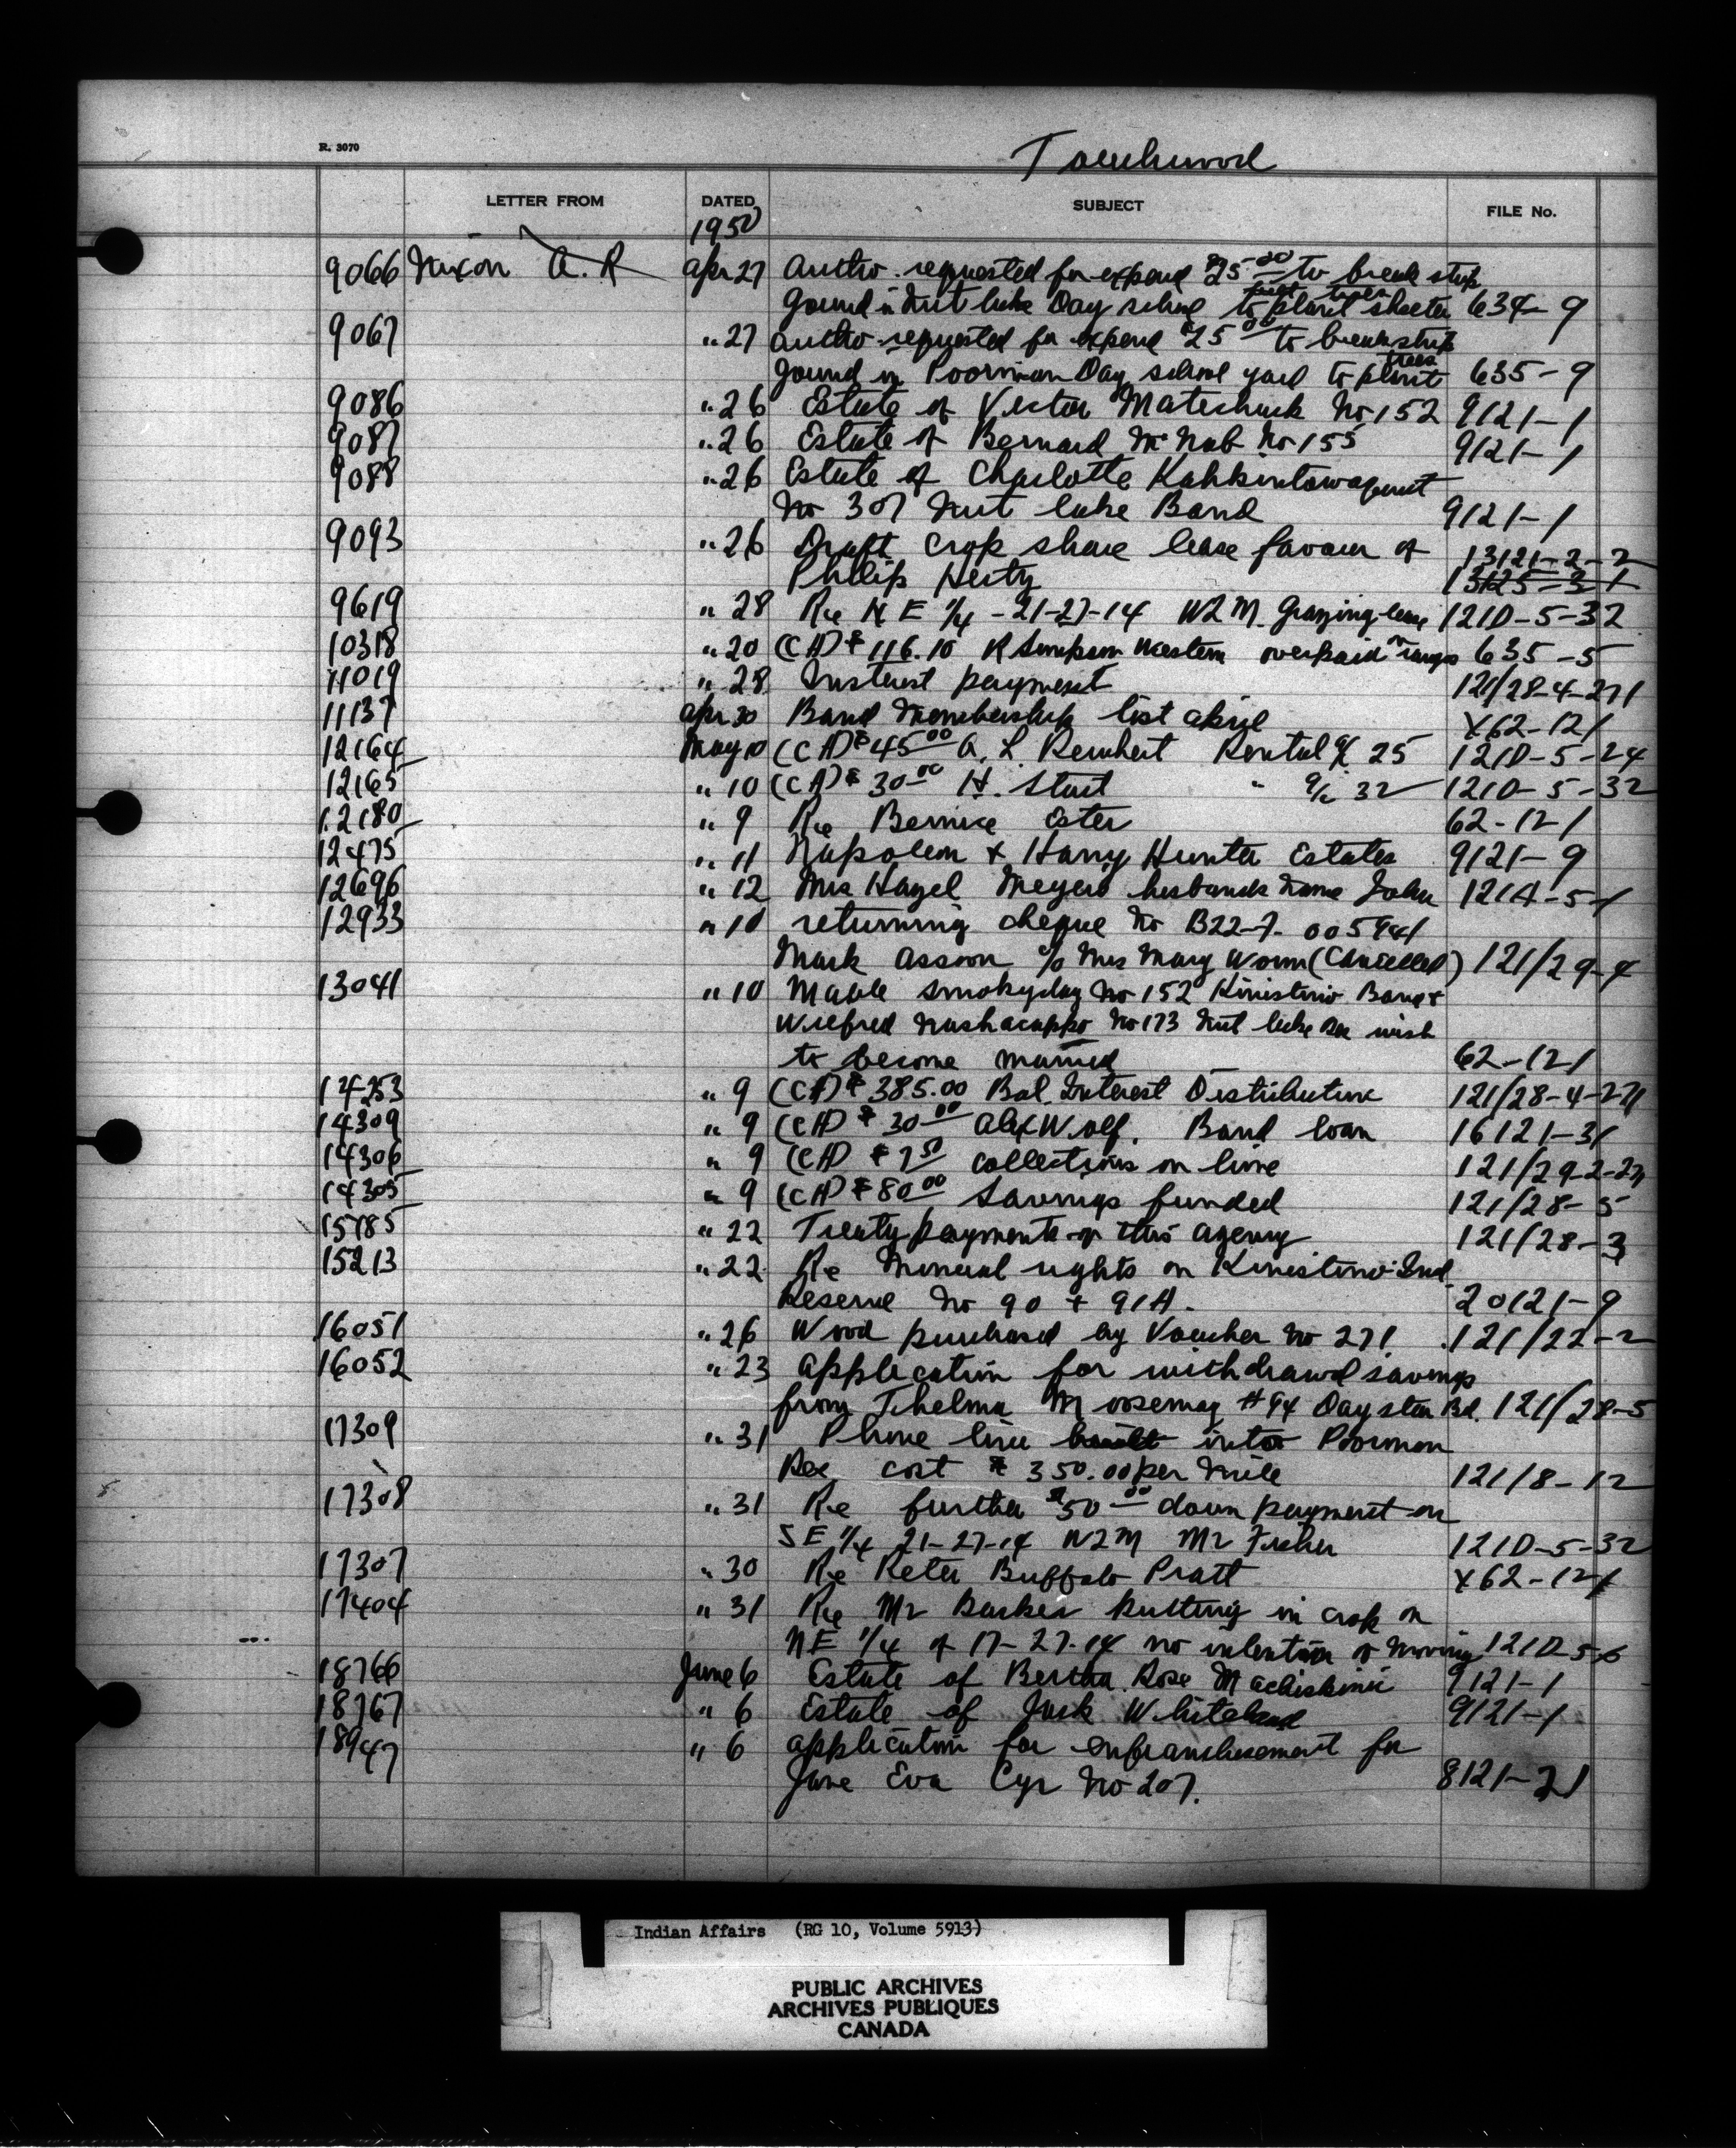 R. 3070
Touchwood
LETTER FROM DATED SUBJECT FILE No.
1950
9066 Nixon A. R Apr 27 Autho. requested for expend $25.00 to break strip
ground in Nut Lake Day school to plant shelter 634-9
9067 " 27 Autho requested for expend $25.00 to break strip
ground in Poorman Day school yard to plant trees 635-9
9086 " 26 Estate of Victor No 152 9121-1
9087 " 26 Estate of Bernard McNab No 155 9121-1
9088 " 26 Estate of Charlotte
No 307 Nut Lake Band 9121-1
9093 " 26 Draft Crop share lease favour of 13121-2-2
Philip Hesty 13125-3-1
9619 " 28 Re N E 1/4 - 21-27-14 W2M. Grazing lease 121D-5-32
10318 " 20 (CA) $116.10 R Simpson Western overpaid on ranges 635-5
11019 " 28 Interest payment 121/28-4-271
11137 Apr 30 Band Membership list X62-121
12164 May 10 (CA) $45.00 A. L. Rental 25 121D-5-24
12165 " 10 (CA) $30.00 H. " 32 121D-5-32
12180 " 9 Re Bernice Ester 62-121
12475 " 11 Napoleon + Harry Hunter Estates 9121-9
12696 " 12 Mrs Hazel Meyers husbands name John 121A-5-1
12933 " 10 returning cheque No B22-7- 005941
Mark Assoon c/o Mrs Mary Worm (Cancelled) 121/29-4
13041 " 10 Mable Smokyday No 152 Kinistino Band +
Wilfred No 173 Nut Lake wish
to become married 62-121
14253 " 9 (CA) $385.00 Bal. Interest Distribution 121/28-4-271
14309 " 9 (CA) $30.00 Alex Wolf. Band loan 16121-31
14306 " 9 (CA) $7.50 collections on lime
14305 " 9 (CA) $80.00 Savings funded 121/28-5
15185 " 22 Treaty payments in this agency 121/28-3
15213 " 22 Re Mineral rights on Kinistino Ind.
Reserve No 90 + 91A. 20121-9
16051 " 26 Wood purchased by Voucher No 271 121/22-2
16052 " 23 Application for withdrawal savings
from Thelma Moosemay #94 Day star Bd. 121/28-5
17309 " 31 Phone line built into Poorman
Res cost $350.00 per mile 121/8-12
17308 " 31 Re further $50.00 down payment on
SE 1/4 21-27-14 W2M Mr Fisher 121D-5-32
17307 " 30 Re Peter Buffalo Pratt X62-121
17404 " 31 Re Mr Barker putting in crop on
NE 1/4 of 17-27-14 no intention of moving 121D-5-6
18766 June 6 Estate of Bertha Rose Machiskinic 9121-1
18767 " 6 Estate of Jack 9121-1
18947 " 6 Application for enfranchisement for
Jane Eva Cyr No 207. 8121-21
Indian Affairs (RG 10, Volume 5913)
PUBLIC ARCHIVES
ARCHIVES PUBLIQUES
CANADA